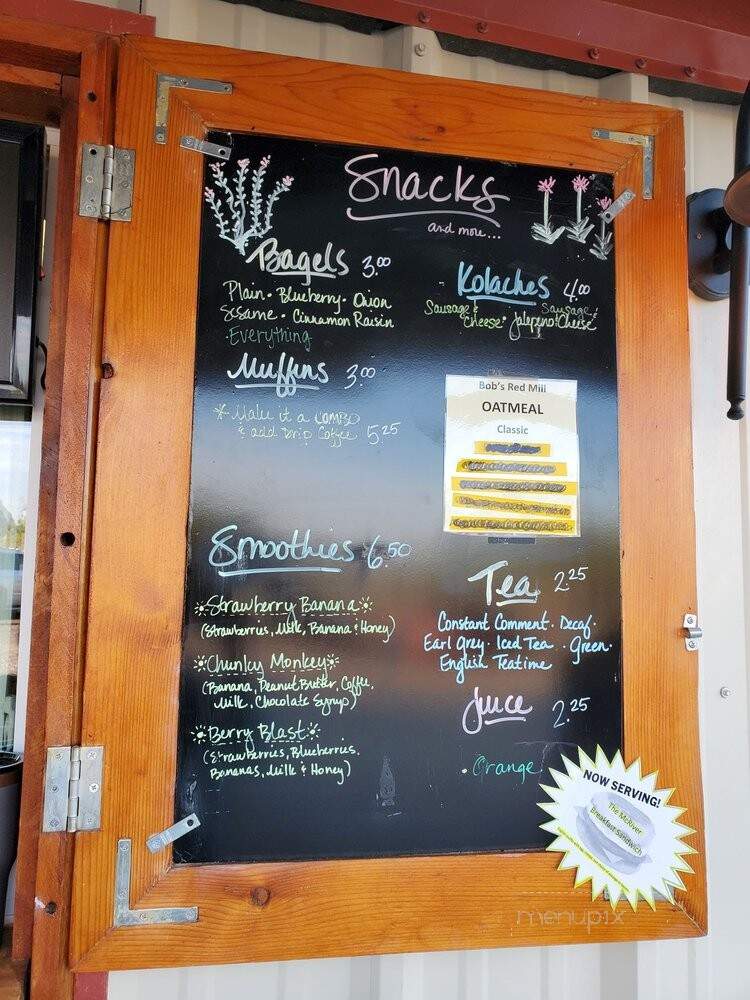 Snacks
and more...
Bagels 3.00
Plain · Blueberry · Onion
Sesame · Cinnamon Raisin
· Everything
Muffins 3.00
* Make it a COMBO
& add Drip Coffee 5.25
Smoothies 6.50
Strawberry Banana
(Strawberries, Milk, Banana & Honey)
Chunky Monkey
(Banana, Peanut Butter, Coffee,
Milk, Chocolate Syrup)
Berry Blast
(Strawberries, Blueberries,
Bananas, Milk & Honey)
Kolaches 4.00
Sausage &
Cheese
Sausage &
Jalepeno Cheese
Bob's Red Mill
OATMEAL
Classic
Tea 2.25
Constant Comment · Decaf ·
Earl Grey · Iced Tea · Green ·
English Teatime
Juice 2.25
· Orange
NOW SERVING!
The McRiver
Breakfast Sandwich
menupix